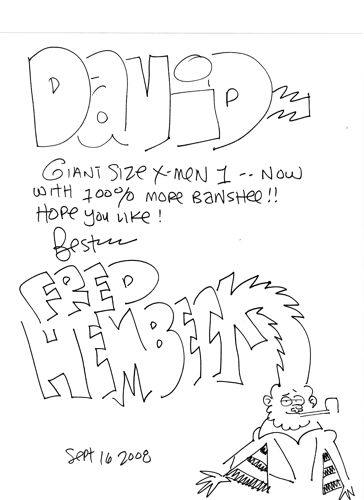 DAVID
GIANT SIZE X-MEN 1 -- NOW
WITH 100% MORE BANSHEE!!
HOPE YOU LIKE!
Best
FRED
HEMBECK
Sept 16 2008